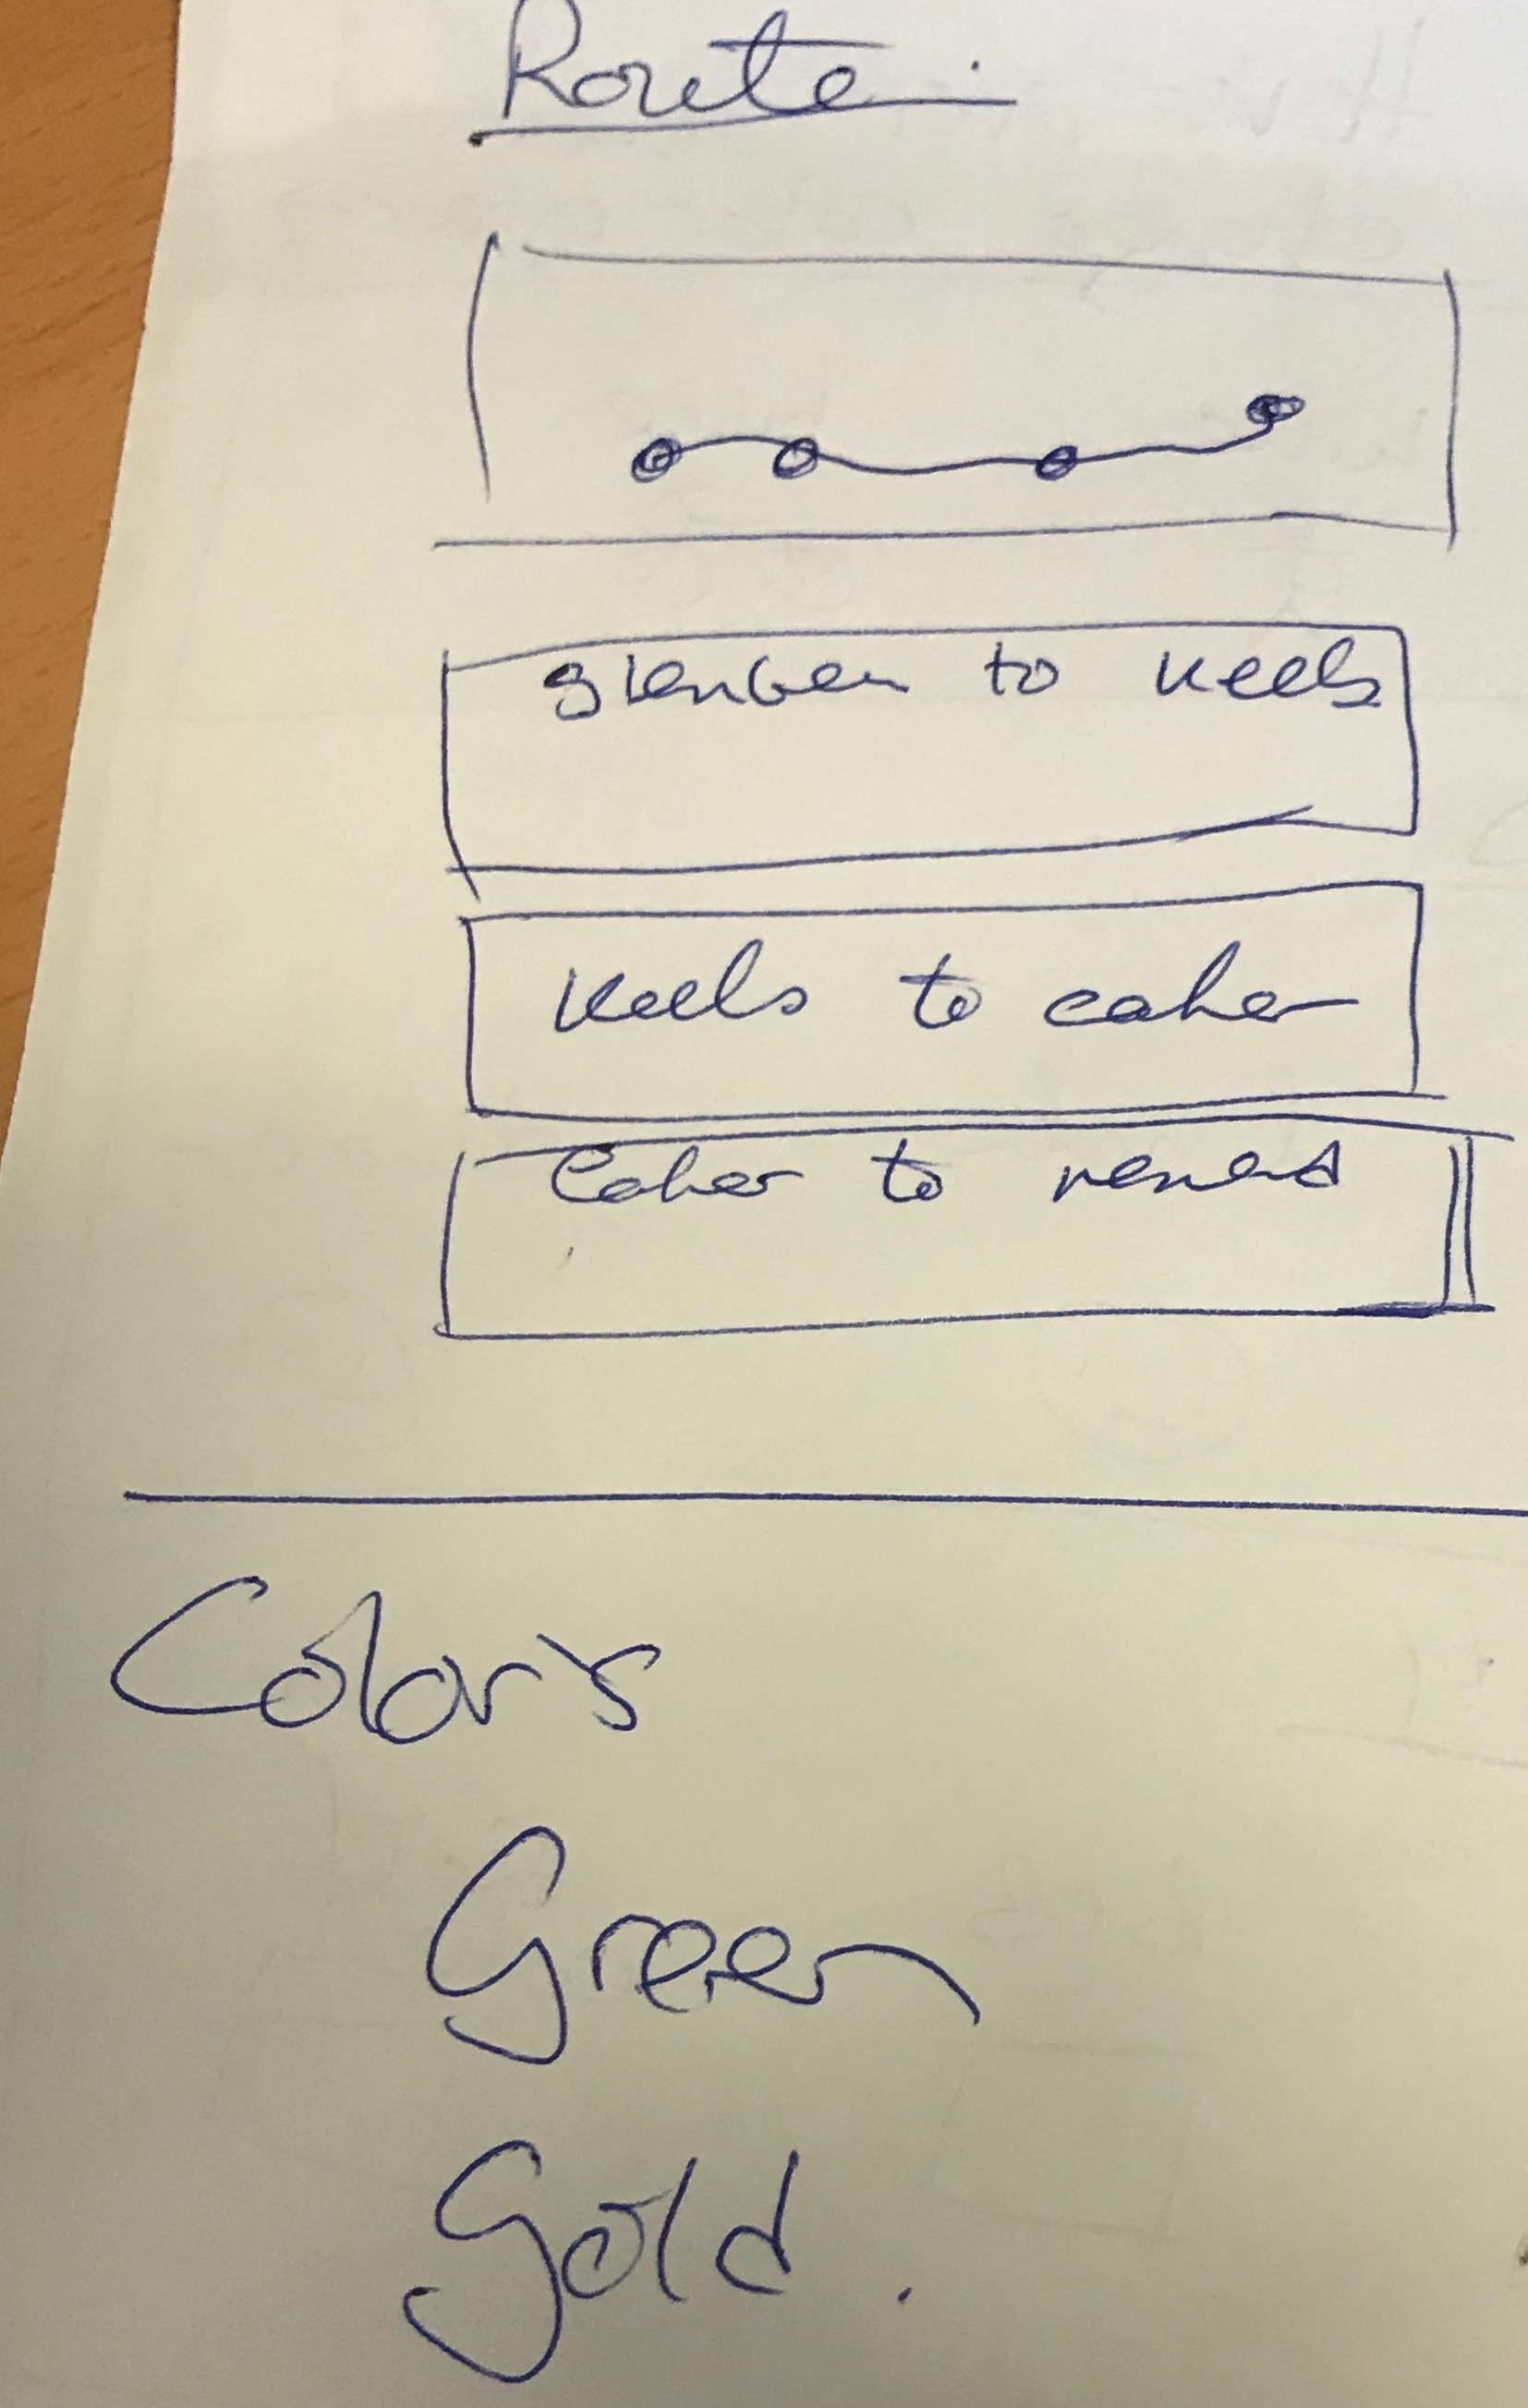 Route
glenbeh to keels
Keels to caher
Caher to renard
Colors
Green
Gold.